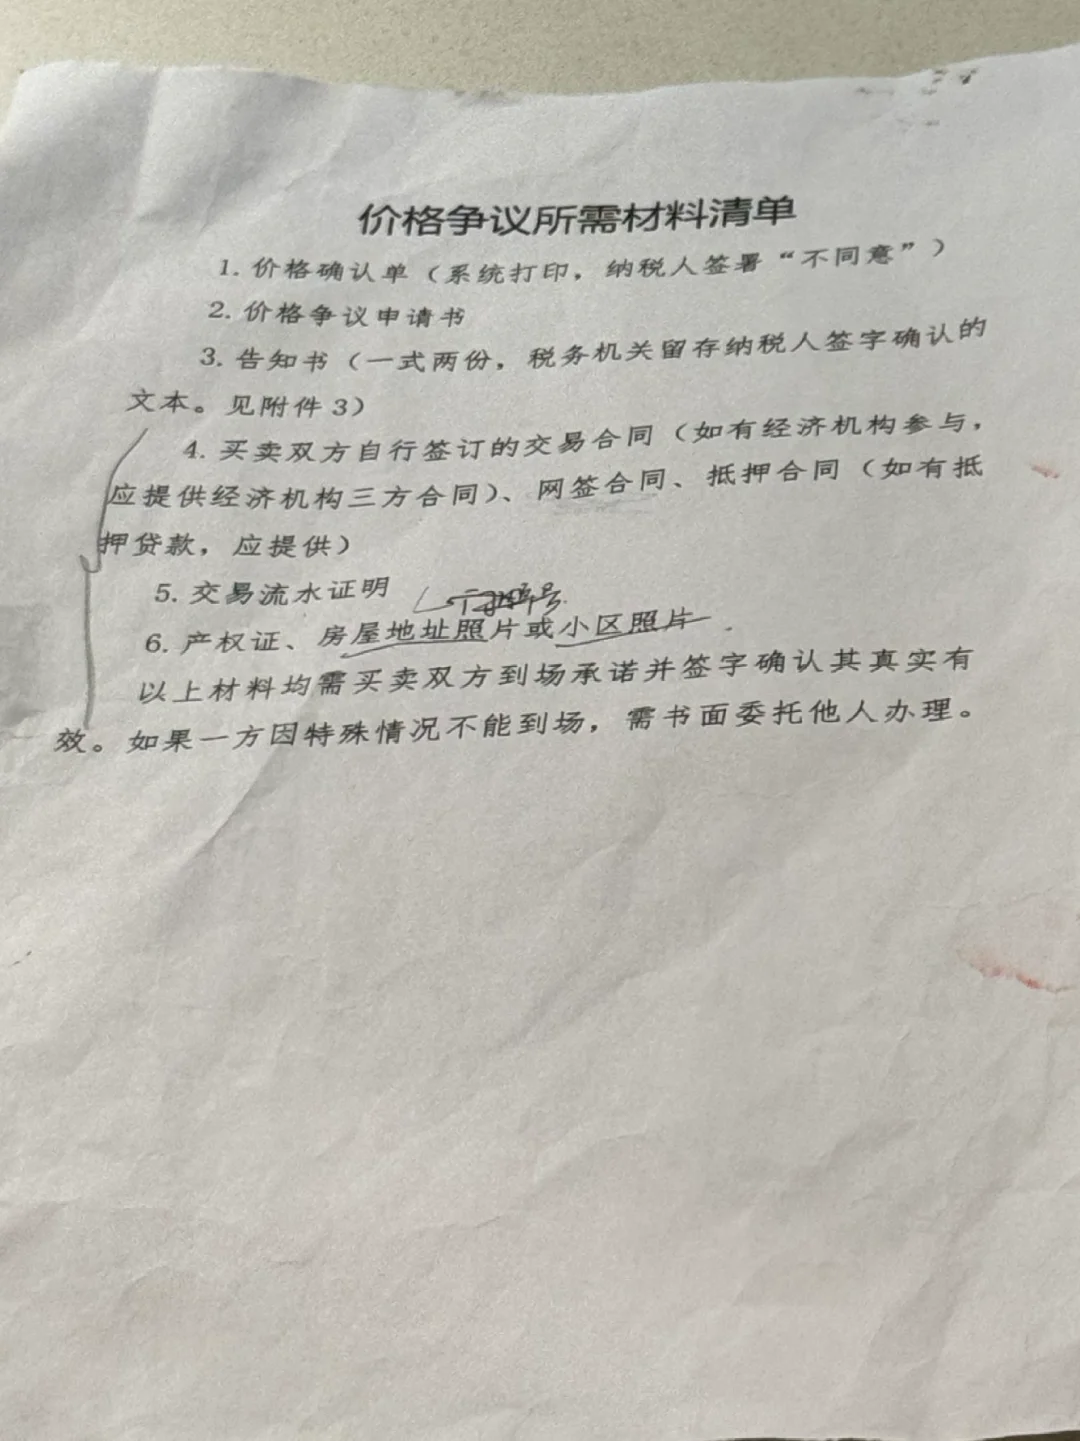 价格争议所需材料清单
1. 价格确认单（系统打印，纳税人签署“不同意”）
2. 价格争议申请书
3. 告知书（一式两份，税务机关留存纳税人签字确认的
文本。见附件 3）
4. 买卖双方自行签订的交易合同（如有经济机构参与，
应提供经济机构三方合同）、网签合同、抵押合同（如有抵
押贷款，应提供）
5. 交易流水证明
6. 产权证、房屋地址照片或小区照片
以上材料均需买卖双方到场承诺并签字确认其真实有
效。如果一方因特殊情况不能到场，需书面委托他人办理。